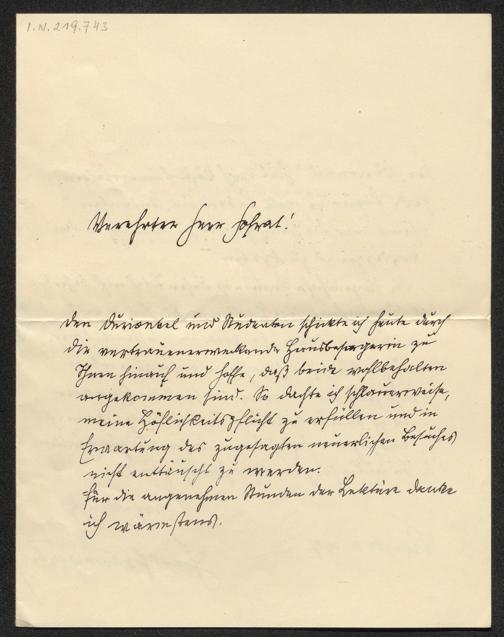 I.N. 219.743
Verehrter Herr Hofrat!
Den und schickte ich heute durch
die vertrauenerweckende Hausbesorgerin zu
Ihnen hinauf und hoffe, daß beide wohlbehalten
angekommen sind. So dachte ich schlauerweise,
meine Höflichkeitspflicht zu erfüllen und in
Erwartung des zugesagten neuerlichen Besuches
nicht enttäuscht zu werden.
Für die angenehmen Stunden der Lektüre danke
ich wärmstens.